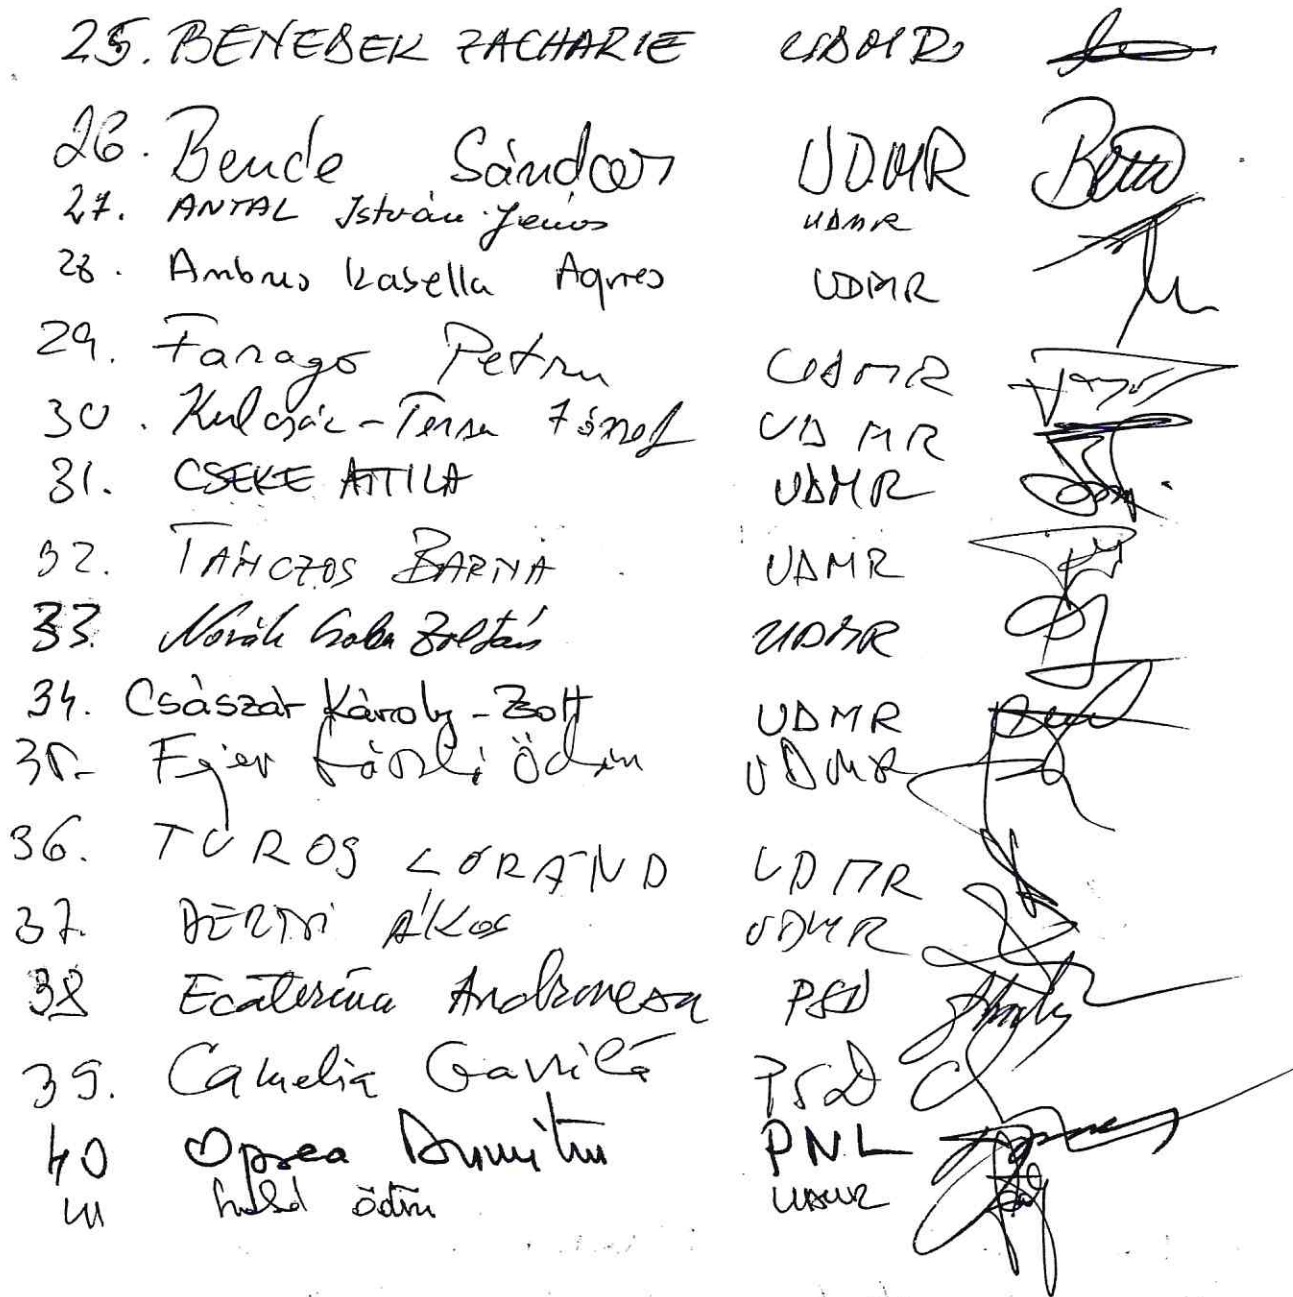 25. BENEDEK ZACHARIE UDMR
26. Bende Sándor UDMR
27. ANTAL István-János UDMR
28. Ambrus Izabella Agnes UDMR
29. Farago Petru UDMR
30. Kulcsár-Terza József UDMR
31. CSEKE ATTILA UDMR
32. TÁNCZOS BARNA UDMR
33. Novák Csaba Zoltán UDMR
34. Császár Károly-Zsolt UDMR
35. Fejér László Ödön UDMR
36. TUROS LÓRÁND UDMR
37. DERZSI ÁKOS UDMR
38 Ecaterina Andronescu PSD
39. Camelia Gavrilă PSD
40 Oprea Dumitru PNL
41 UDMR